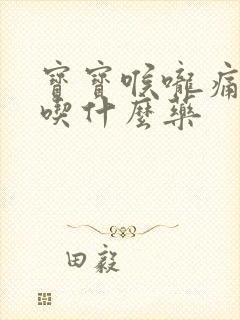 寶寶喉嚨痛
喫什麼藥
田毅